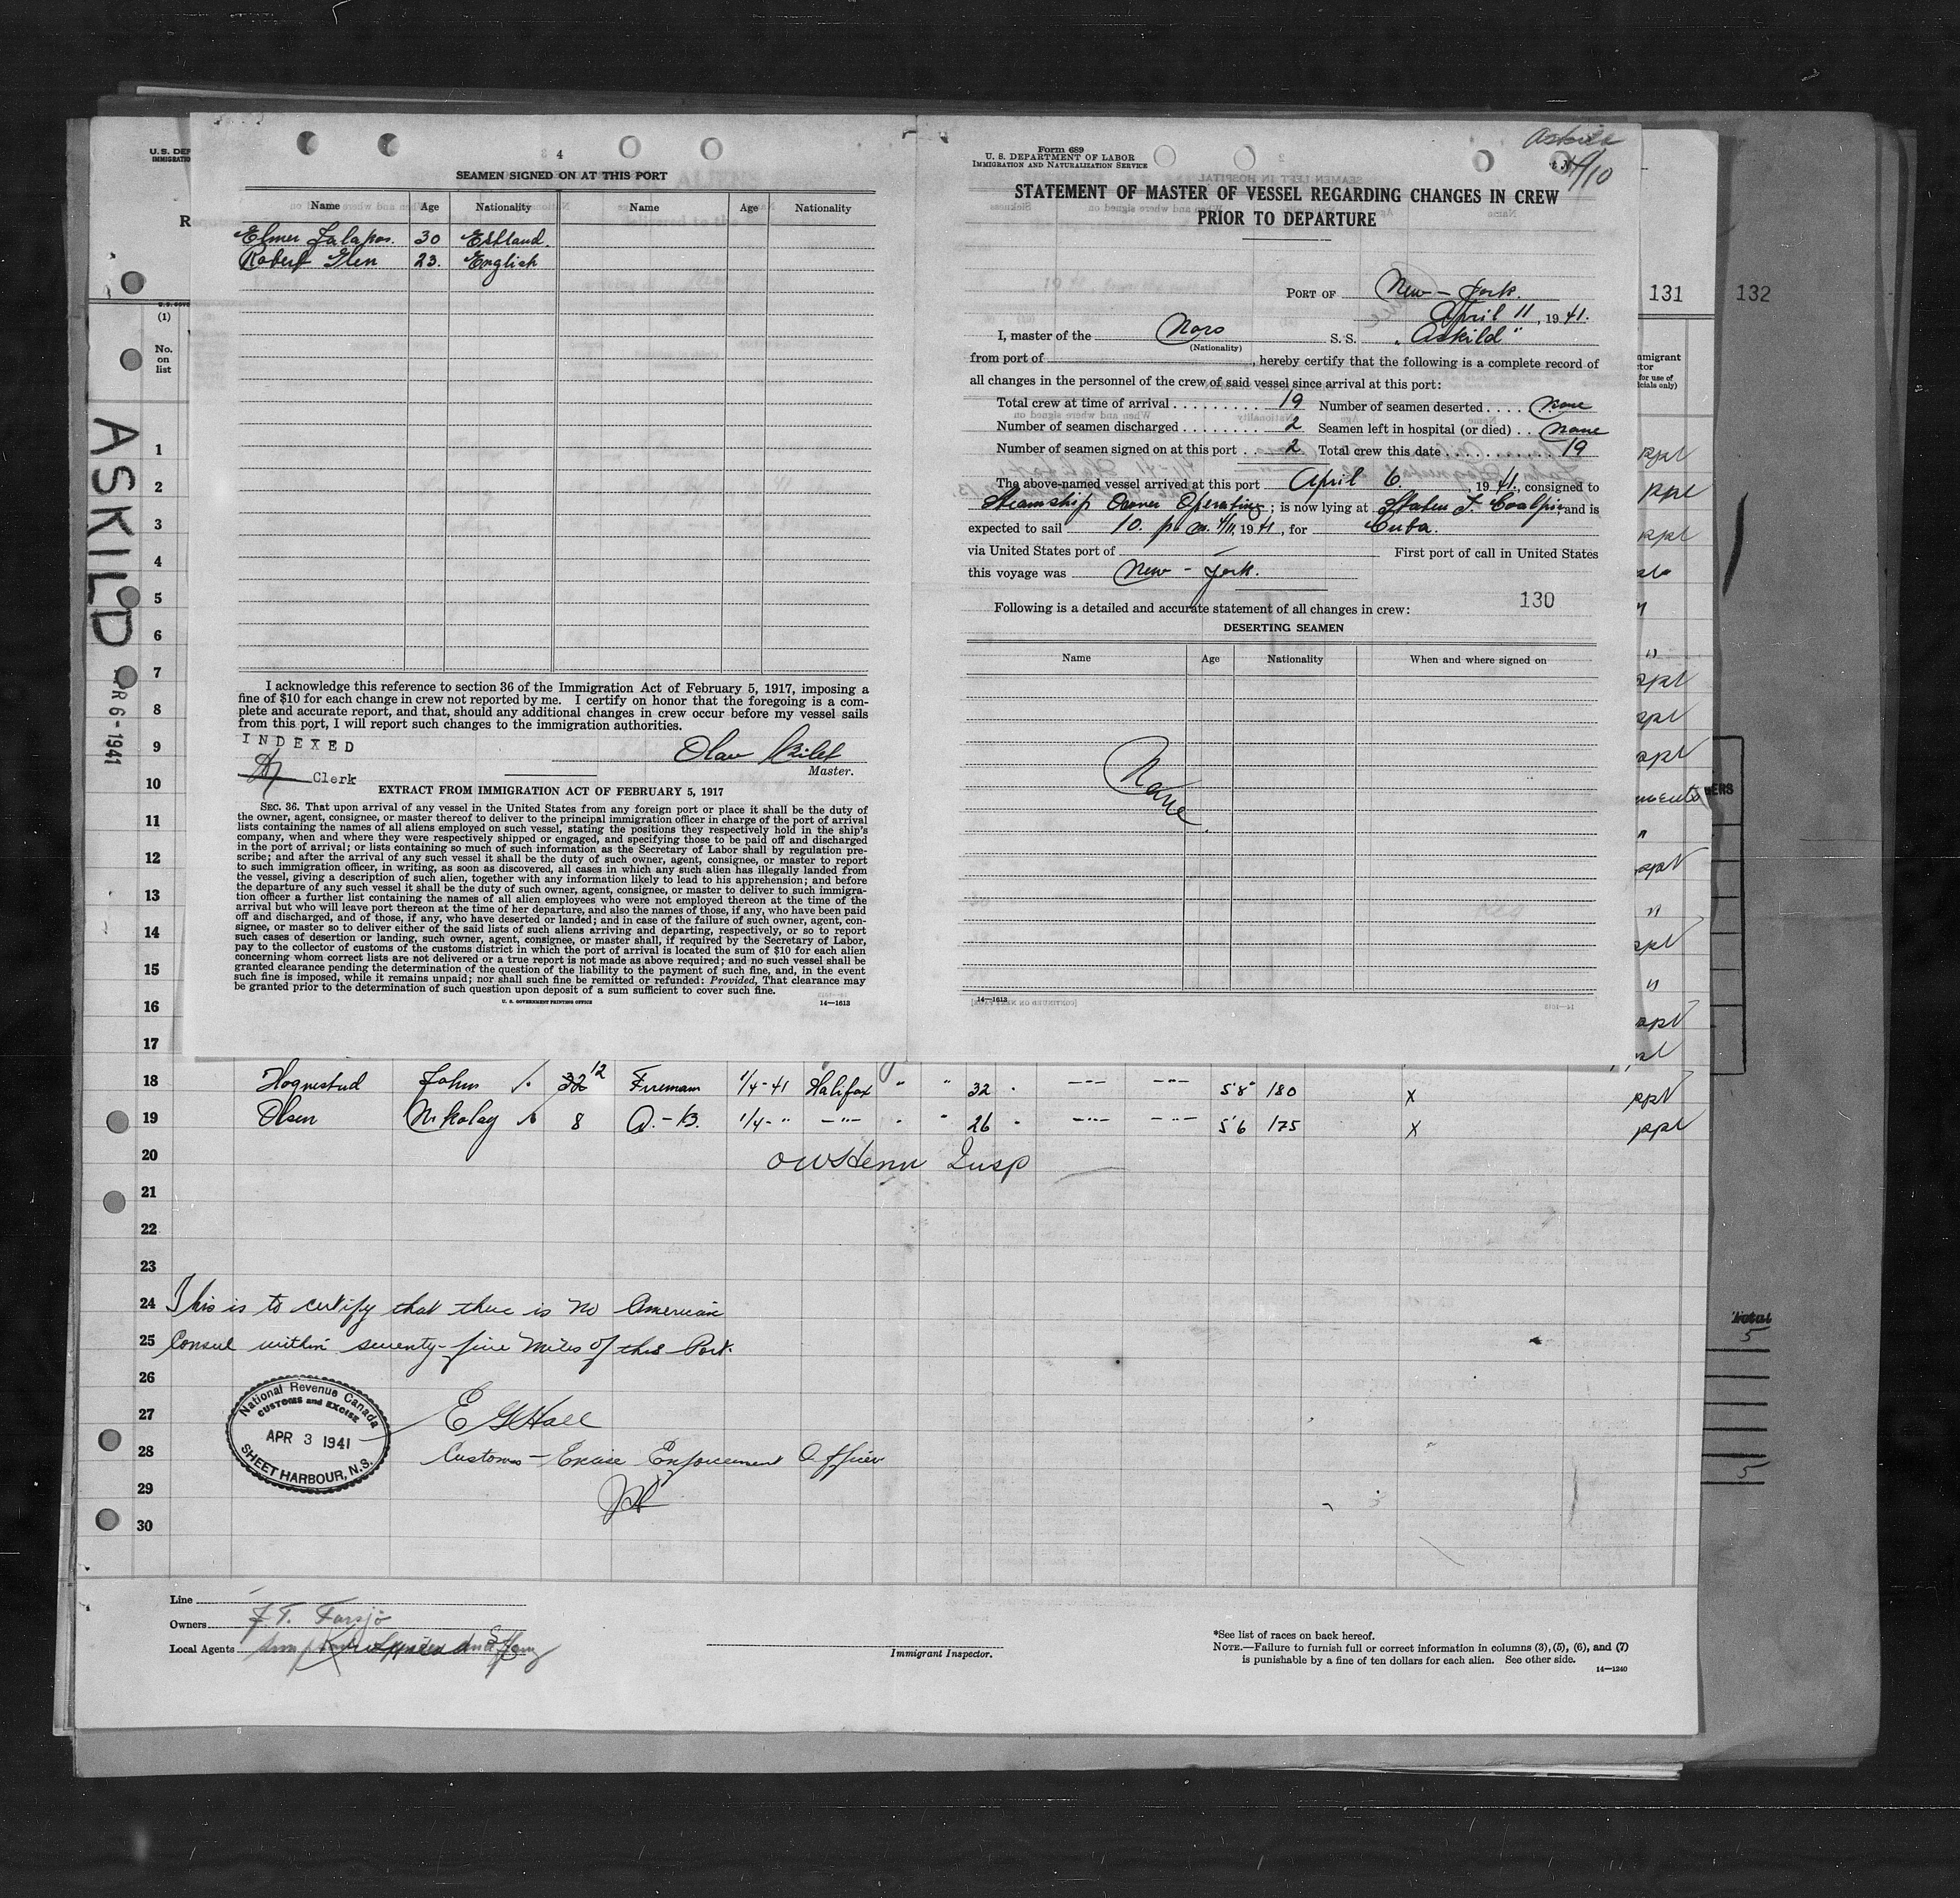 4
SEAMEN SIGNED ON AT THIS PORT
Name Age Nationality Name Age Nationality
Elmer 30 Estland.
Robert Glen 23. English
I acknowledge this reference to section 36 of the Immigration Act of February 5, 1917, imposing a
fine of $10 for each change in crew not reported by me. I certify on honor that the foregoing is a com-
plete and accurate report, and that, should any additional changes in crew occur before my vessel sails
from this port, I will report such changes to the immigration authorities.
INDEXED
Clerk
Olav
Master.
EXTRACT FROM IMMIGRATION ACT OF FEBRUARY 5, 1917
SEC. 36. That upon arrival of any vessel in the United States from any foreign port or place it shall be the duty of
the owner, agent, consignee, or master thereof to deliver to the principal immigration officer in charge of the port of arrival
lists containing the names of all aliens employed on such vessel, stating the positions they respectively hold in the ship's
company, when and where they were respectively shipped or engaged, and specifying those to be paid off and discharged
in the port of arrival; or lists containing so much of such information as the Secretary of Labor shall by regulation pre-
scribe; and after the arrival of any such vessel it shall be the duty of such owner, agent, consignee, or master to report
to such immigration officer, in writing, as soon as discovered, all cases in which any such alien has illegally landed from
the vessel, giving a description of such alien, together with any information likely to lead to his apprehension; and before
the departure of any such vessel it shall be the duty of such owner, agent, consignee, or master to deliver to such immigra-
tion officer a further list containing the names of all alien employees who were not employed thereon at the time of the
arrival but who will leave port thereon at the time of her departure, and also the names of those, if any, who have been paid
off and discharged, and of those, if any, who have deserted or landed; and in case of the failure of such owner, agent, con-
signee, or master so to deliver either of the said lists of such aliens arriving and departing, respectively, or so to report
such cases of desertion or landing, such owner, agent, consignee, or master shall, if required by the Secretary of Labor,
pay to the collector of customs of the customs district in which the port of arrival is located the sum of $10 for each alien
concerning whom correct lists are not delivered or a true report is not made as above required; and no such vessel shall be
granted clearance pending the determination of the question of the liability to the payment of such fine, and, in the event
such fine is imposed, while it remains unpaid; nor shall such fine be remitted or refunded: Provided, That clearance may
be granted prior to the determination of such question upon deposit of a sum sufficient to cover such fine.
U. S. GOVERNMENT PRINTING OFFICE 14—1613
Askild
4/10
Form 689
U. S. DEPARTMENT OF LABOR
IMMIGRATION AND NATURALIZATION SERVICE
STATEMENT OF MASTER OF VESSEL REGARDING CHANGES IN CREW
PRIOR TO DEPARTURE
PORT OF New-York.
April 11, 1941.
I, master of the Norw S. S. „Askild"
(Nationality)
from port of , hereby certify that the following is a complete record of
all changes in the personnel of the crew of said vessel since arrival at this port:
Total crew at time of arrival 19 Number of seamen deserted None
Number of seamen discharged 2 Seamen left in hospital (or died) None
Number of seamen signed on at this port 2 Total crew this date 19
The above-named vessel arrived at this port April 6. , 1941., consigned to
Steamship Owner Operating; is now lying at Staten I. Coalpier, and is
expected to sail 10. p. m. 4/11, 1941, for Cuba.
via United States port of — First port of call in United States
this voyage was New-York.
130
Following is a detailed and accurate statement of all changes in crew:
DESERTING SEAMEN
Name Age Nationality When and where signed on
None.
14—1613
131 132
U. S. DEP
IMMIGRATION
R
(1)
No.
on
list
ASKILD
R 6 - 1941
mmigrant
tor
for use of
icials only)
1
2
3
4
5
6
7
8
9
10
11
12
13
14
15
16
17
18 Hognestad John 32 12 Fireman 1/4-41 Halifax " " 32 5'8" 180 X ppl
19 Olsen Nikolay 8 A.-B. 1/4-" -"- " " 26 5'6 175 X ppl
20 OWStenn Insp
21
22
23
24 This is to certify that there is no American
25 Consul within seventy-five miles of this Port.
26
27 E G Hall
28 Customs-Excise Enforcement Officer
29
30
National Revenue Canada
CUSTOMS and EXCISE
APR 3 1941
SHEET HARBOUR, N.S.
Total
5
5
Line
Owners
Local Agents
Immigrant Inspector.
*See list of races on back hereof.
NOTE.—Failure to furnish full or correct information in columns (3), (5), (6), and (7)
is punishable by a fine of ten dollars for each alien. See other side.
14—1240